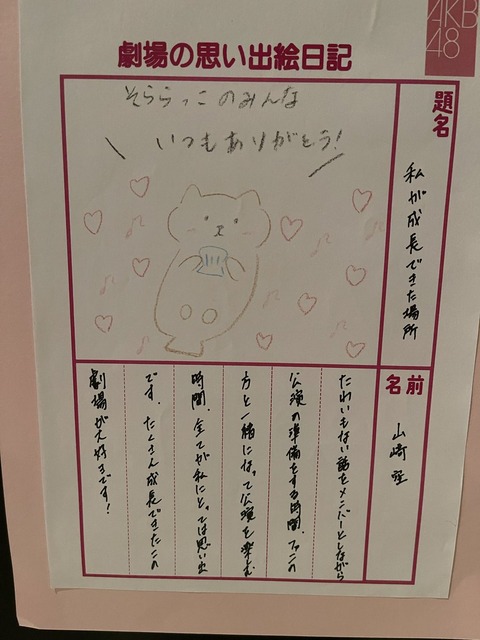 AKB
48
劇場の思い出絵日記
題名
私が成長できた場所
そららっこのみんな
いつもありがとう!
名前
山﨑空
たわいもない話をメンバーとしながら
公演の準備をする時間、ファンの
方と一緒になって公演を楽しむ
時間、全てが私にとっては思い出
です。たくさん成長できたこの
劇場が大好きです!